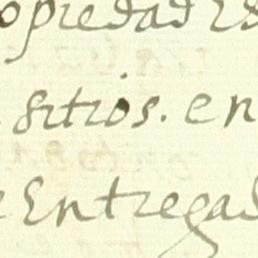 opiedad
sitios. en
Entregad